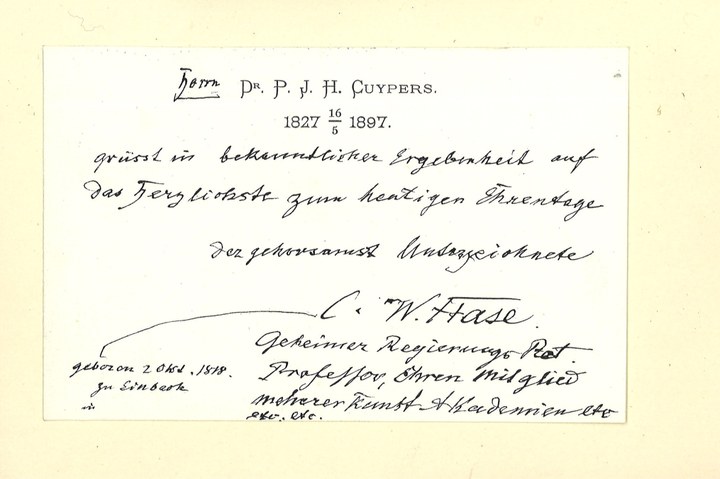 Herrn Dr. P. J. H. Cuypers.
1827 16/5 1897.
grüsst in bekanntlicher Ergebenheit auf
das Herzlichste zum heutigen Ehrentage
der gehorsamst Unterzeichnete
C. W. Hase.
Geheimer Regierungs Rat.
Professor, Ehren Mitglied
mehrer Kunst Akademien etc
etc. etc.
geboren 2 Okt. 1818.
zu Einbeck
in